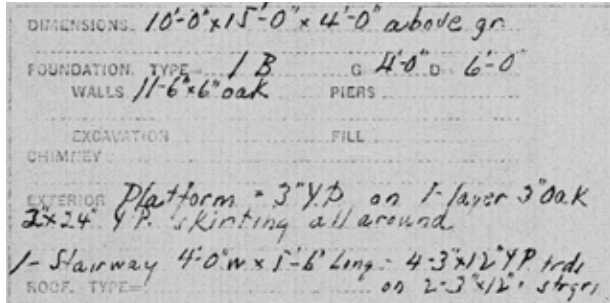 DIMENSIONS. 10'-0"x15'-0"x 4'-0" above gr
FOUNDATION. TYPE= 1 B G 4'-0" D. 6'-0"
WALLS 11-6"x6" oak PIERS
EXCAVATION FILL
CHIMNEY
EXTERIOR Platform = 3" Y.P. on 1-layer 3" Oak
2"x24" Y.P. skirting all around
1- Stairway 4'-0"w x 5'-6" Long - 4-3"x12" Y P trds
ROOF. TYPE= on 2-3"x12" strgrs